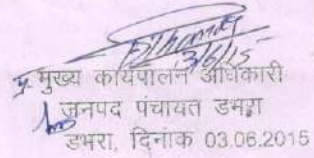 3/6/15
मुख्य कार्यपालन अधिकारी
जनपद पंचायत डभरा
डभरा, दिनांक 03.06.2015